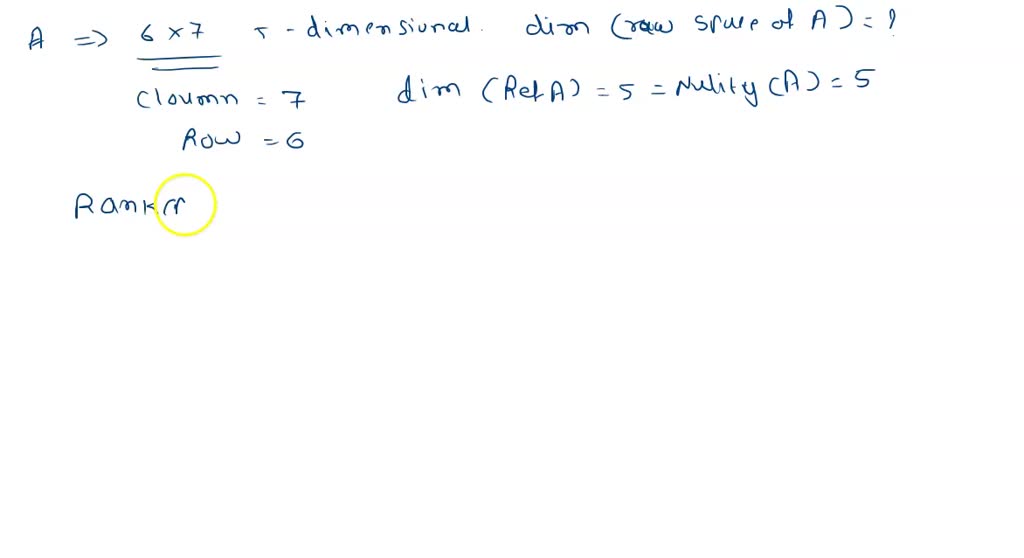 A => 6 × 7 5 - dimensional. dim (raw spale of A) = ?
Cloumn = 7 dim (Ref A) = 5 = Nulity (A) = 5
Row = 6
Rank